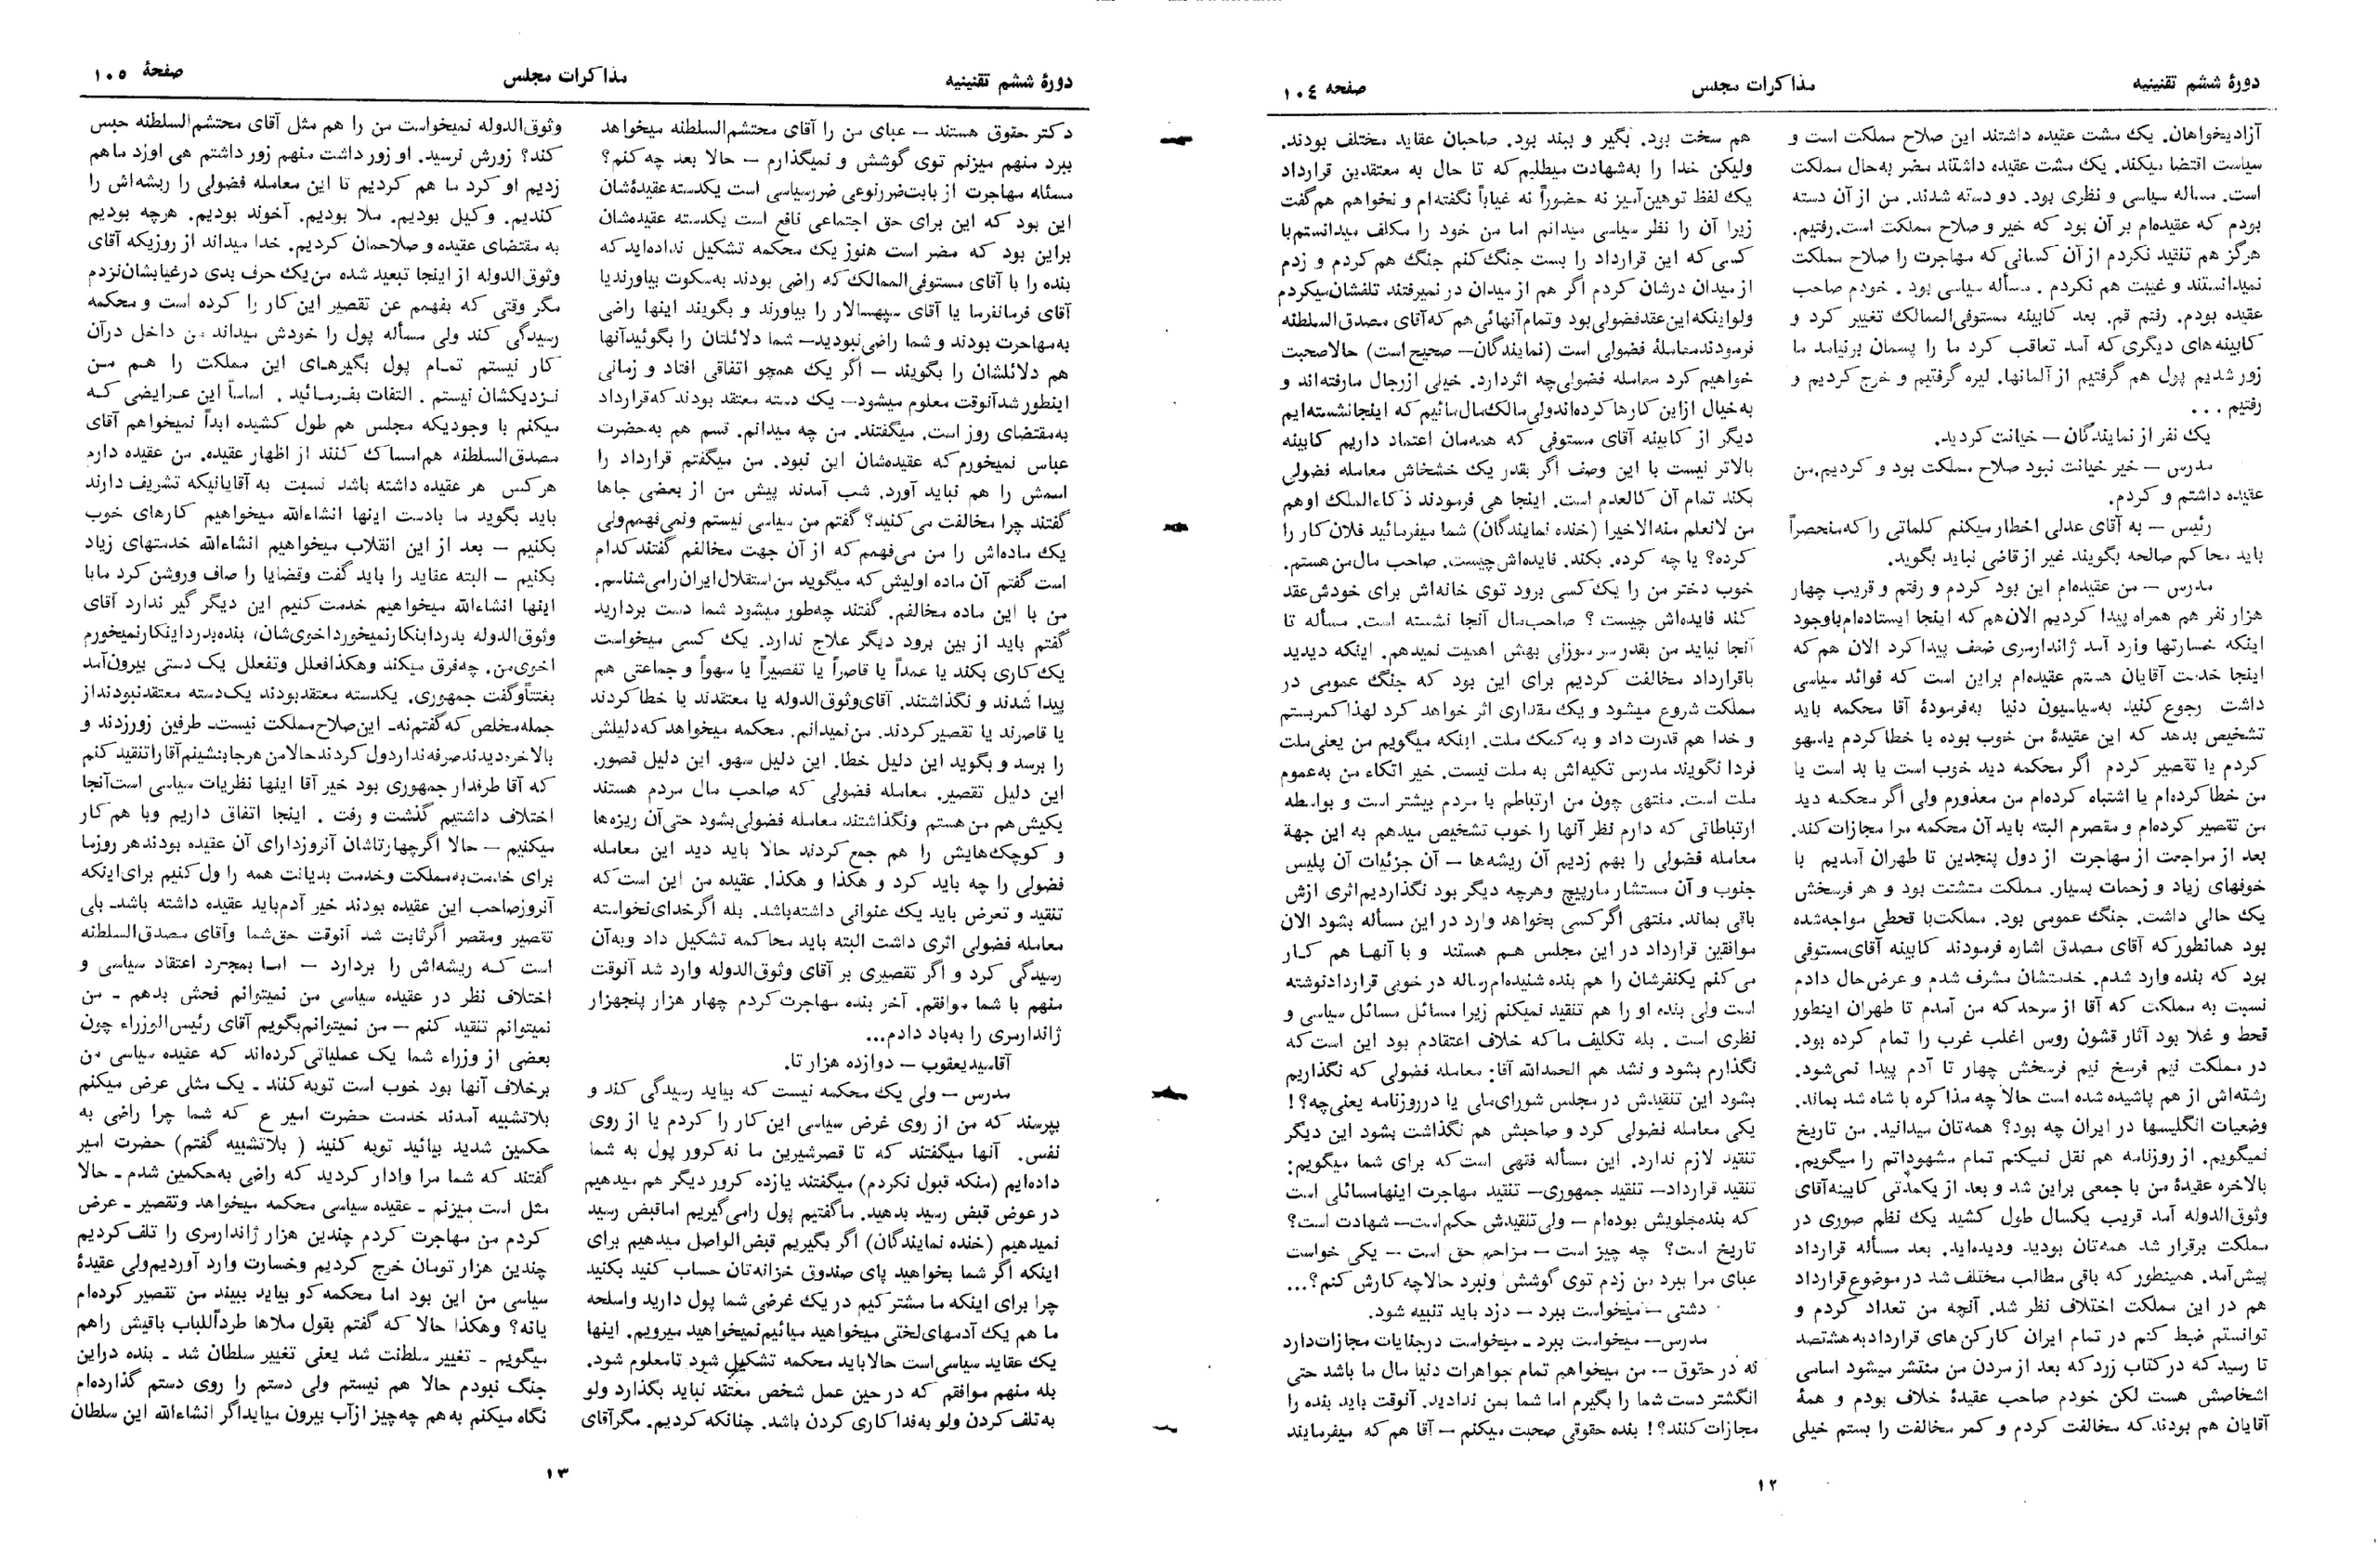 دورهٔ ششم تقنینیه
مذاکرات مجلس
صفحه ۱۰٤
آزادیخواهان. یک مشت عقیده داشتند این صلاح مملکت است و
سیاست اقتضا میکند. یک مشت عقیده داشتند مضر به‌حال مملکت
است. مساله سیاسی و نظری بود. دو دسته شدند. من از آن دسته
بودم که عقیده‌ام بر آن بود که خیر و صلاح مملکت است. رفتیم.
هرگز هم تنقید نکردم از آن کسانی که مهاجرت را صلاح مملکت
نمیدانستند و غیبت هم نکردم. مسأله سیاسی بود. خودم صاحب
عقیده بودم. رفتم قم. بعد کابینه مستوفی‌الممالک تغییر کرد و
کابینه‌های دیگری که آمد تعاقب کرد ما را پسمان برنیامد ما
زور شدیم پول هم گرفتیم از آلمانها. لیره گرفتیم و خرج کردیم و
رفتیم ...
یک نفر از نمایندگان — خیانت کردید.
مدرس — خیر خیانت نبود صلاح مملکت بود و کردیم. من
عقیده داشتم و کردم.
رئیس — به آقای عدلی اخطار میکنم کلماتی را که منحصراً
باید محاکم صالحه بگویند غیر از قاضی نباید بگوید.
مدرس — من عقیده‌ام این بود کردم و رفتم و قریب چهار
هزار نفر هم همراه پیدا کردیم الان هم که اینجا ایستاده‌ام باوجود
اینکه خسارتها وارد آمد ژاندارمری ضعف پیدا کرد الان هم که
اینجا خدمت آقایان هستم عقیده‌ام براین است که فوائد سیاسی
داشت رجوع کنید به‌سیاسیون دنیا به‌فرمودهٔ آقا محکمه باید
تشخیص بدهد که این عقیدهٔ من خوب بوده یا خطا کردم یاسهو
کردم یا تقصیر کردم اگر محکمه دید خوب است یا بد است یا
من خطا کرده‌ام یا اشتباه کرده‌ام من معذورم ولی اگر محکمه دید
من تقصیر کرده‌ام و مقصرم البته باید آن محکمه مرا مجازات کند.
بعد از مراجعت از مهاجرت از دول پنجدین تا طهران آمدیم با
خونهای زیاد و زحمات بسیار. مملکت متشتت بود و هر فرسخش
یک حالی داشت. جنگ عمومی بود. مملکت با قحطی مواجه‌شده
بود همانطور که آقای مصدق اشاره فرمودند کابینه آقای‌مستوفی
بود که بنده وارد شدم. خدمتشان مشرف شدم و عرض حال دادم
نسبت به مملکت که آقا از سرحد که من آمدم تا طهران اینطور
قحط و غلا بود آثار قشون روس اغلب غرب را تمام کرده بود.
در مملکت نیم فرسخ نیم فرسخش چهار تا آدم پیدا نمی‌شود.
رشته‌اش از هم پاشیده شده است حالا چه مذاکره با شاه شد بماند.
وضعیات انگلیسها در ایران چه بود؟ همه‌تان میدانید. من تاریخ
نمیگویم. از روزنامه هم نقل نمیکنم تمام مشهوداتم را میگویم.
بالاخره عقیدهٔ من با جمعی براین شد و بعد از یکمدتی کابینه‌آقای
وثوق‌الدوله آمد قریب یکسال طول کشید یک نظم صوری در
مملکت برقرار شد همه‌تان بودید ودیده‌اید. بعد مسأله قرارداد
پیش‌آمد. همینطور که باقی مطالب مختلف شد در موضوع قرارداد
هم در این مملکت اختلاف نظر شد. آنچه من تعداد کردم و
توانستم ضبط کنم در تمام ایران کارکن‌های قرارداد به هشتصد
تا رسید که در کتاب زرد که بعد از مردن من منتشر میشود اسامی
اشخاصش هست لکن خودم صاحب عقیدهٔ خلاف بودم و همهٔ
آقایان هم بودند که مخالفت کردم و کمر مخالفت را بستم خیلی
هم سخت بود. بگیر و ببند بود. صاحبان عقاید مختلف بودند.
ولیکن خدا را به‌شهادت میطلبم که تا حال به معتقدین قرارداد
یک لفظ توهین‌آمیز نه حضوراً نه غیاباً نگفته‌ام و نخواهم هم‌گفت
زیرا آن را نظر سیاسی میدانم اما من خود را مکلف میدانستم با
کسی که این قرارداد را بست جنگ کنم جنگ هم کردم و زدم
از میدان درشان کردم اگر هم از میدان در نمیرفتند تلفشان میکردم
ولو اینکه این عقد فضولی بود و تمام آنهائی هم که آقای مصدق السلطنه
فرمودند معاملهٔ فضولی است (نمایندگان— صحیح است) حالا صحبت
خواهیم کرد معامله فضولی چه اثر دارد. خیلی از رجال ما رفته‌اند و
به خیال از این کارها کرده‌اند ولی مالک مال مائیم که اینجا نشسته‌ایم
دیگر از کابینه آقای مستوفی که همه‌مان اعتماد داریم کابینه
بالاتر نیست با این وصف اگر بقدر یک خشخاش معامله فضولی
بکند تمام آن کالعدم است. اینجا هی فرمودند ذکاءالملک اوهم
من لانعلم منه الاخیرا (خنده نمایندگان) شما میفرمائید فلان کار را
کرده؟ یا چه کرده. بکند. فایده‌اش چیست. صاحب مال من هستم.
خوب دختر من را یک کسی برود توی خانه‌اش برای خودش عقد
کند فایده‌اش چیست؟ صاحب‌مال آنجا نشسته است. مسأله تا
آنجا نیاید من بقدر سر سوزنی بهش اهمیت نمیدهم. اینکه دیدید
باقرارداد مخالفت کردیم برای این بود که جنگ عمومی در
مملکت شروع میشود و یک مقداری اثر خواهد کرد لهذا کمر بستم
و خدا هم قدرت داد و به کمک ملت. اینکه میگویم من یعنی ملت
فردا نگویند مدرس تکیه‌اش به ملت نیست. خیر اتکاء من به عموم
ملت است. منتهی چون من ارتباطم با مردم بیشتر است و بواسطه
ارتباطاتی که دارم نظر آنها را خوب تشخیص میدهم به این جهة
معامله فضولی را بهم زدیم آن ریشه‌ها — آن جزئیات آن پلیس
جنوب و آن مستشار مارپیچ وهرچه دیگر بود نگذاردیم اثری ازش
باقی بماند. منتهی اگر کسی بخواهد وارد در این مسأله بشود الان
موافقین قرارداد در این مجلس هم هستند و با آنها هم کار
می کنم یکنفرشان را هم بنده شنیده‌ام رساله در خوبی قرارداد نوشته
است ولی بنده او را هم تنقید نمیکنم زیرا مسائل مسائل سیاسی و
نظری است. بله تکلیف ما که خلاف اعتقادم بود این است که
نگذارم بشود و نشد هم الحمدالله آقا: معامله فضولی که نگذاریم
بشود این تنقیدش در مجلس شورای‌ملی یا در روزنامه یعنی چه؟!
یکی معامله فضولی کرد و صاحبش هم نگذاشت بشود این دیگر
تنقید لازم ندارد. این مسأله فقهی است که برای شما میگویم:
تنقید قرارداد— تنقید جمهوری— تنقید مهاجرت اینها مسائلی است
که بنده جلویش بوده‌ام — ولی تنقیدش حکم است— شهادت است؟
تاریخ است؟ چه چیز است — مزاحم حق است — یکی خواست
عبای مرا ببرد من زدم توی گوشش ونبرد حالا چه کارش کنم؟...
دشتی — میخواست ببرد — دزد باید تنبیه شود.
مدرس— میخواست ببرد - میخواست درجنایات مجازات دارد
نه در حقوق — من میخواهم تمام جواهرات دنیا مال ما باشد حتی
انگشتر دست شما را بگیرم اما شما بمن ندادید. آنوقت باید بنده را
مجازات کنند؟! بنده حقوقی صحبت میکنم — آقا هم که میفرمایند
۱۲
دورهٔ ششم تقنینیه
مذاکرات مجلس
صفحهٔ ۱۰٥
دکتر حقوق هستند — عبای من را آقای محتشم السلطنه میخواهد
ببرد منهم میزنم توی گوشش و نمیگذارم — حالا بعد چه کنم؟
مسئله مهاجرت از بابت ضررنوعی ضررسیاسی است یکدسته عقیدهٔشان
این بود که این برای حق اجتماعی نافع است یکدسته عقیدهشان
براین بود که مضر است هنوز یک محکمه تشکیل نداده‌اید که
بنده را با آقای مستوفی‌الممالک که راضی بودند به‌سکوت بیاورند یا
آقای فرمانفرما یا آقای سپهسالار را بیاورند و بگویند اینها راضی
به‌مهاجرت بودند و شما راضی نبودید— شما دلائلتان را بگوئید آنها
هم دلائلشان را بگویند — اگر یک همچو اتفاقی افتاد و زمانی
اینطور شد آنوقت معلوم میشود— یک دسته معتقد بودند که قرارداد
به‌مقتضای روز است. میگفتند. من چه میدانم. قسم هم به‌حضرت
عباس نمیخورم که عقیده‌شان این نبود. من میگفتم قرارداد را
اسمش را هم نباید آورد. شب آمدند پیش من از بعضی جاها
گفتند چرا مخالفت می‌کنید؟ گفتم من سیاسی نیستم ونمی‌فهمم ولی
یک ماده‌اش را من می‌فهمم که از آن جهت مخالفم گفتند کدام
است گفتم آن ماده اولیش که میگوید من استقلال ایران رامی شناسم.
من با این ماده مخالفم. گفتند چه‌طور میشود شما دست بردارید
گفتم باید از بین برود دیگر علاج ندارد. یک کسی میخواست
یک کاری بکند یا عمداً یا قاصراً یا تقصیراً یا سهواً و جماعتی هم
پیدا شدند و نگذاشتند. آقای وثوق‌الدوله یا معتقدند یا خطا کردند
یا قاصرند یا تقصیر کردند. من نمیدانم. محکمه میخواهد که دلیلش
را برسد و بگوید این دلیل خطا. این دلیل سهو. این دلیل قصور.
این دلیل تقصیر. معامله فضولی که صاحب مال مردم هستند
یکیش هم من هستم ونگذاشتند معامله فضولی بشود حتی آن ریزه‌ها
و کوچک‌هایش را هم جمع کردند حالا باید دید این معامله
فضولی را چه باید کرد و هکذا و هکذا. عقیده من این است که
تنقید و تعرض باید یک عنوانی داشته‌باشد. بله اگر خدای نخواسته
معامله فضولی اثری داشت البته باید محاکمه تشکیل داد وبه‌آن
رسیدگی کرد و اگر تقصیری بر آقای وثوق‌الدوله وارد شد آنوقت
منهم با شما موافقم. آخر بنده مهاجرت کردم چهار هزار پنجهزار
ژاندارمری را به‌باد دادم...
آقاسیدیعقوب — دوازده هزار تا.
مدرس — ولی یک محکمه نیست که بیاید رسیدگی کند و
بپرسند که من از روی غرض سیاسی این کار را کردم یا از روی
نفس. آنها میگفتند که تا قصرشیرین ما نه کرور پول به شما
داده‌ایم (منکه قبول نکردم) میگفتند یازده کرور دیگر هم میدهیم
در عوض قبض رسید بدهید. ما گفتیم پول رامی گیریم اما قبض رسید
نمیدهیم (خنده نمایندگان) اگر بگیریم قبض الواصل میدهیم برای
اینکه اگر شما بخواهید پای صندوق خزانه‌تان حساب کنید بکنید
چرا برای اینکه ما مشترکیم در یک غرضی شما پول دارید واسلحه
ما هم یک آدمهای لختی میخواهید میائیم نمیخواهید میرویم. اینها
یک عقاید سیاسی است حالا باید محکمه تشکیل شود تا معلوم شود.
بله منهم موافقم که در حین عمل شخص معتقد نباید بگذارد ولو
به تلف کردن ولو به فداکاری کردن باشد. چنانکه کردیم. مگر آقای
وثوق‌الدوله نمیخواست من را هم مثل آقای محتشم‌السلطنه حبس
کند؟ زورش نرسید. او زور داشت منهم زور داشتم هی اوزد ماهم
زدیم او کرد ما هم کردیم تا این معامله فضولی را ریشه‌اش را
کندیم. وکیل بودیم. ملا بودیم. آخوند بودیم. هرچه بودیم
به مقتضای عقیده و صلاحمان کردیم. خدا میداند از روزیکه آقای
وثوق‌الدوله از اینجا تبعید شده من یک حرف بدی درغیابشان نزدم
مگر وقتی که بفهمم عن تقصیر این کار را کرده است و محکمه
رسیدگی کند ولی مسأله پول را خودش میداند من داخل درآن
کار نیستم تمام پول بگیرهای این مملکت را هم من
نزدیکشان نیستم. التفات بفرمائید. اساساً این عرایضی که
میکنم با وجودیکه مجلس هم طول کشیده ابداً نمیخواهم آقای
مصدق‌السلطنه هم امساک کنند از اظهار عقیده. من عقیده دارم
هرکس هر عقیده داشته باشد نسبت به آقایانیکه تشریف دارند
باید بگوید ما بادست اینها انشاءالله میخواهیم کارهای خوب
بکنیم — بعد از این انقلاب میخواهیم انشاءالله خدمتهای زیاد
بکنیم — البته عقاید را باید گفت وقضایا را صاف وروشن کرد مابا
اینها انشاءالله میخواهیم خدمت کنیم این دیگر گیر ندارد آقای
وثوق‌الدوله بدرد اینکار نمیخورد اخوی‌شان، بنده بدرد اینکار نمیخورم
اخوی‌من. چه فرق میکند وهکذا فعلل وتفعلل یک دستی بیرون آمد
بغتتاً و گفت جمهوری. یکدسته معتقد بودند یک دسته معتقد نبودند از
جمله مخلص که گفتم نه— این صلاح مملکت نیست— طرفین زورزدند و
بالاخره دیدند صرفه ندارد ول کردند حالا من هرجا بنشینم آقا را تنقید کنم
که آقا طرفدار جمهوری بود خیر آقا اینها نظریات سیاسی است آنجا
اختلاف داشتیم گذشت و رفت. اینجا اتفاق داریم وبا هم کار
میکنیم — حالا اگر چهارتاشان آنروز دارای آن عقیده بودند هر روز ما
برای خدمت به مملکت وخدمت بدیانت همه را ول کنیم برای اینکه
آنروز صاحب این عقیده بودند خیر آدم باید عقیده داشته باشد— بلی
تقصیر ومقصر اگر ثابت شد آنوقت حق شما وآقای مصدق‌السلطنه
است که ریشه‌اش را بردارد — اما بمجرد اعتقاد سیاسی و
اختلاف نظر در عقیده سیاسی من نمیتوانم فحش بدهم - من
نمیتوانم تنقید کنم — من نمیتوانم بگویم آقای رئیس‌الوزراء چون
بعضی از وزراء شما یک عملیاتی کرده‌اند که عقیده سیاسی من
برخلاف آنها بود خوب است توبه کنند - یک مثلی عرض میکنم
بلاتشبیه آمدند خدمت حضرت امیر ع که شما چرا راضی به
حکمین شدید بیائید توبه کنید (بلاتشبیه گفتم) حضرت امیر
گفتند که شما مرا وادار کردید که راضی به‌حکمین شدم - حالا
مثل است میزنم - عقیده سیاسی محکمه میخواهد وتقصیر - عرض
کردم من مهاجرت کردم چندین هزار ژاندارمری را تلف کردیم
چندین هزار تومان خرج کردیم وخسارت وارد آوردیم ولی عقیدهٔ
سیاسی من این بود اما محکمه کو بیاید ببیند من تقصیر کرده‌ام
یانه؟ وهکذا حالا که گفتم بقول ملاها طرداًللباب باقیش راهم
میگویم - تغییر سلطنت شد یعنی تغییر سلطان شد - بنده دراین
جنگ نبودم حالا هم نیستم ولی دستم را روی دستم گذارده‌ام
نگاه میکنم به هم چه چیز از آب بیرون میاید اگر انشاءالله این سلطان
۱۳